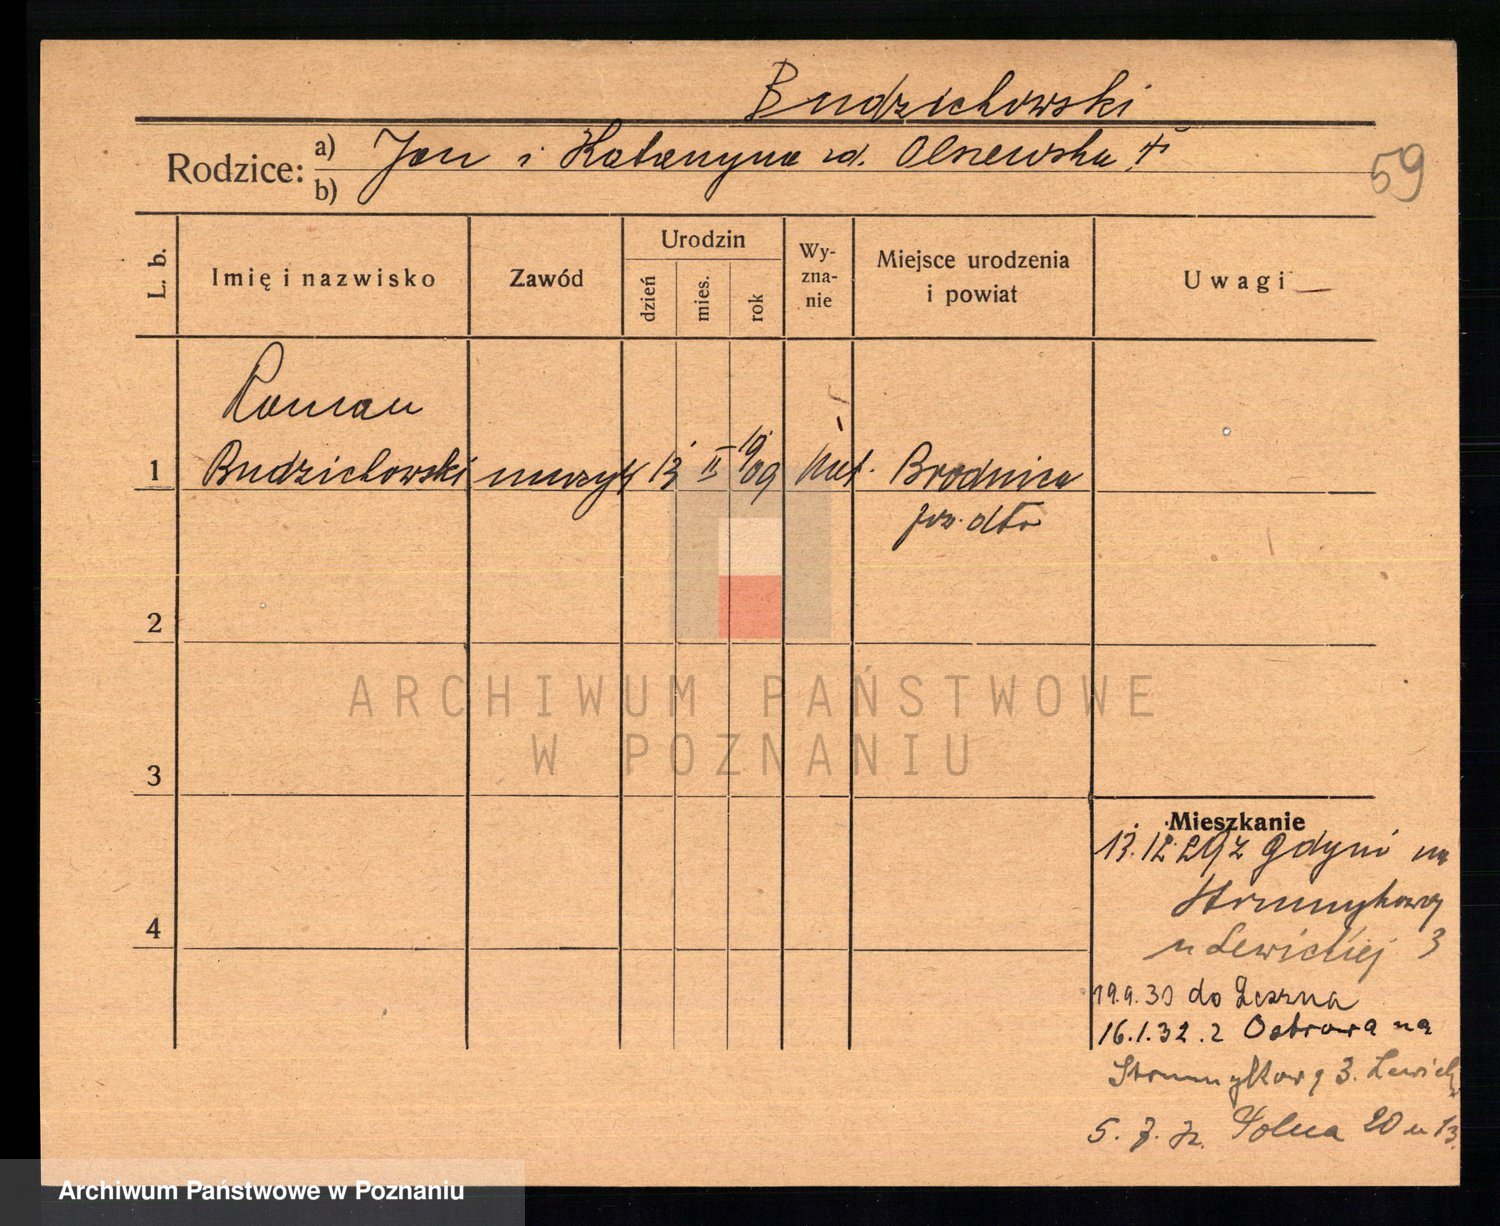 Budzichowski
59
Rodzice: a) Jan i Katarzyna zd. Olszewska
b)
L. b.
Imię i nazwisko
Zawód
Urodzin
dzień
mies.
rok
Wy-
zna-
nie
Miejsce urodzenia
i powiat
Uwagi
Roman
1 Budzichowski muzyk 13 II 19/09 kat. Brodnica
2
3
4
Mieszkanie
13.12.29 z Gdyni na
Strumykową
u Lewickiej 3
19.9.30 do Leszna
16.1.32. z Ostrowa na
Strumykową 3.
5. 7. 32. Polna 20
ARCHIWUM PAŃSTWOWE
W POZNANIU
Archiwum Państwowe w Poznaniu